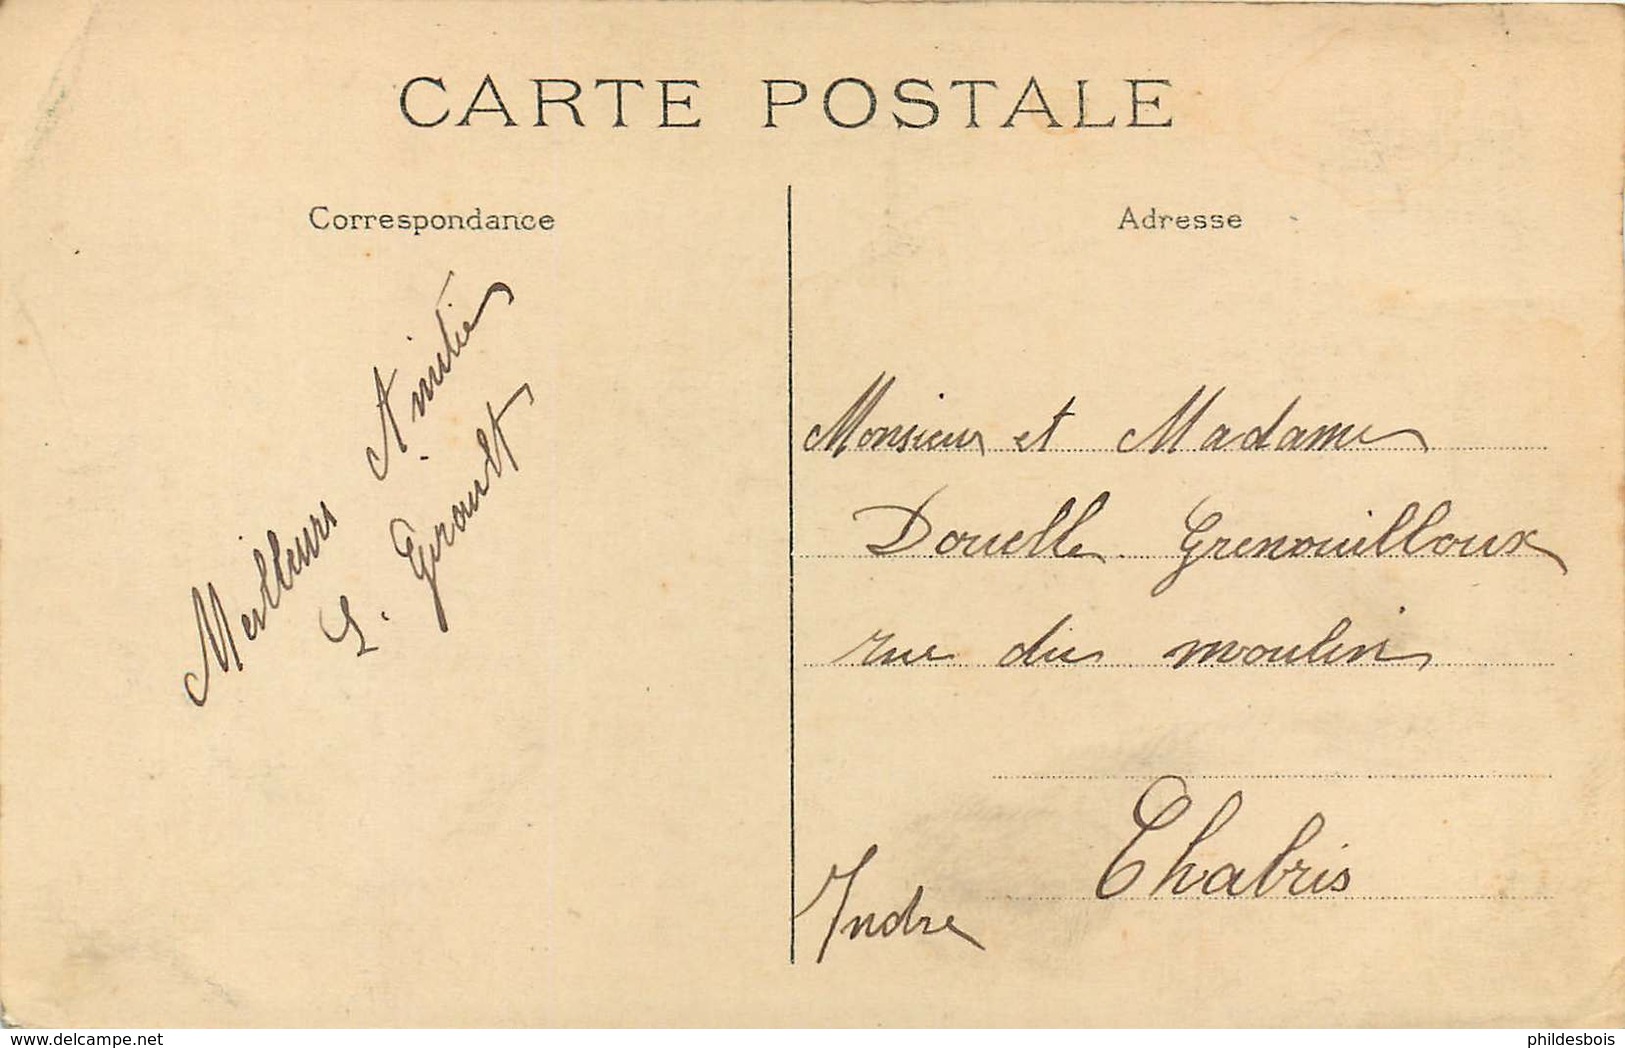 CARTE POSTALE
Correspondance
Meilleurs Amitiés
L. Girault
Adresse
Monsieur et Madame
Douelle Grenouilloux
rue du moulin
Chabris
Indre
delcampe.net
phildesbois